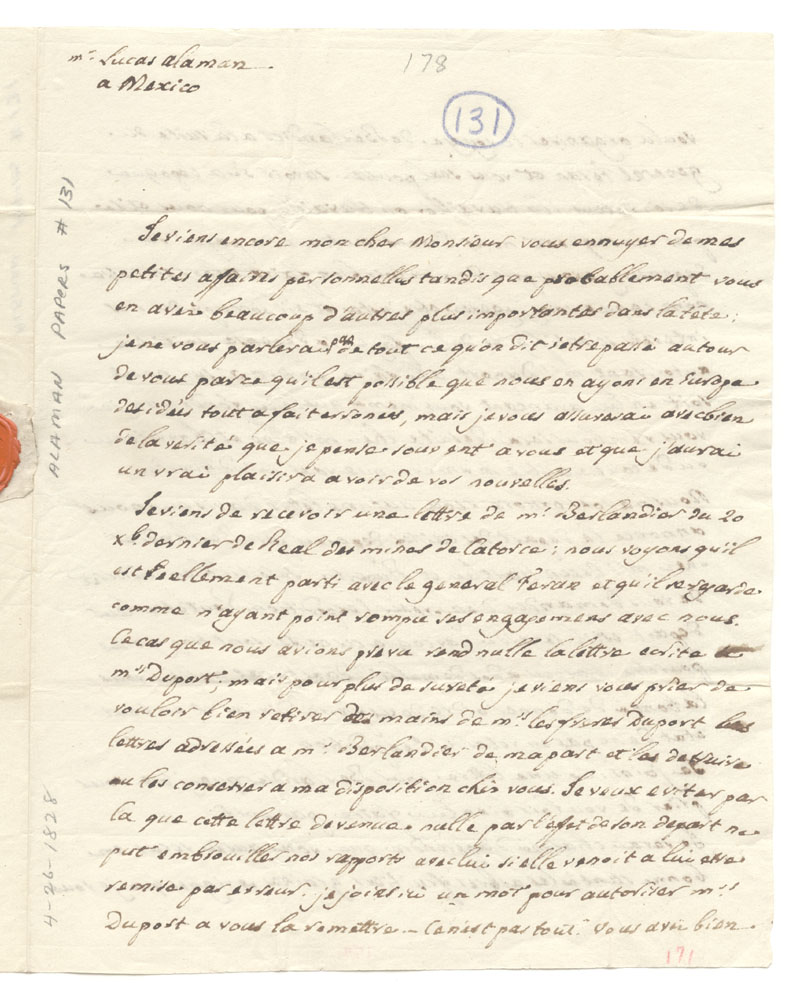 mr. Lucas alaman
a Mexico
178
131
ALAMAN PAPERS # 131
4-26-1828
Je viens encore mon cher Monsieur vous ennuyer de mes
petites affaires personnelles tandis que probablement vous
en avez beaucoup d'autres plus importantes dans la tête;
je ne vous parlerai pas de tout ce qu'on dit s'etre passé autour
de vous parce qu'il est possible que nous en ayons en Europe
des idées tout a fait erronées, mais je vous assurerai avec bien
de la verité que je pense souvent a vous et que j'aurai
un vrai plaisir a avoir de vos nouvelles.
Je viens de recevoir une lettre de mr. Berlandier du 20
xbr. dernier de Real des mines de Catorce; nous voyons qu'il
est reellement parti avec le general Teran et qu'il se regarde
comme n'ayant point rompu ses engagemens avec nous.
Ce cas que nous avions prevu rend nulle la lettre ecrite a
mrs Duport; mais pour plus de sureté je viens vous prier de
vouloir bien retirer des mains de mrs les freres Duport les
lettres adressées a mr. Berlandier de ma part et les detruire
ou les conserver a ma disposition chez vous. Je veux eviter par
la que cette lettre devenue nulle par l'efet de son depart ne
put embrouiller nos rapports avec lui si elle venoit a lui etre
remise par erreur. je joins ici un mot pour autoriser mrs
Duport a vous la remettre – Ce n'est pas tout. Vous avez bien
171